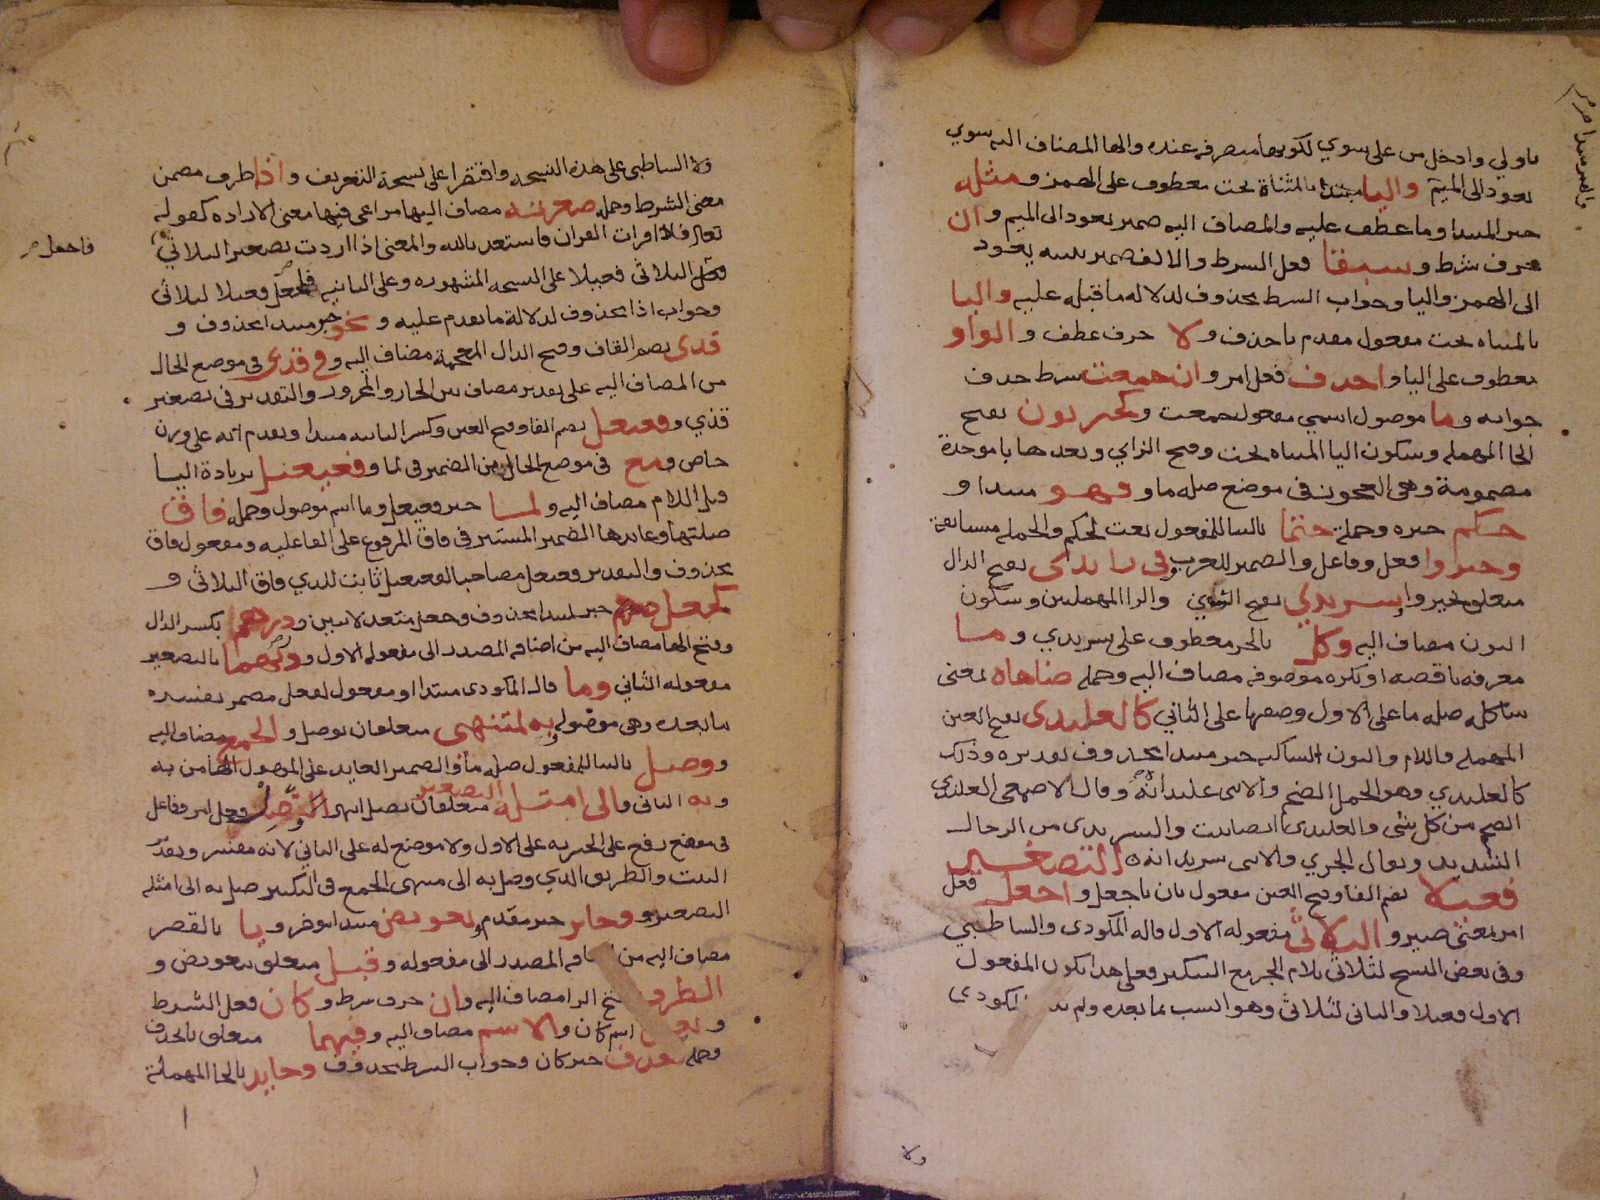 باولي وادخل من على سوي لكونها متصرفه عنده والها المضاف اليه سوي
يعود الى الميم واليا مبتدا بالمثناة تحت معطوف على الهمز ومثله
خبر المبتدا وما عطف عليه والمضاف اليه ضمير يعود الى الميم وان
حرف شرط وسبقا فعل الشرط والالف ضمير تثنيه يعود
الى الهمز واليا وجواب الشرط محذوف لدلاله ما قبله عليه واليا
بالمثناه تحت مفعول مقدم باحذف ولا حرف عطف والواو
معطوف على اليا واحدف فعل امر وان جمعت شرط حذف
جوابه وما موصول اسمي مفعول جمعت وكحيزبون بفتح
الحا المهمله وسكون اليا المثناه تحت وفتح الزاي وبعدها با موحدة
مضمومة وهى العجوز فى موضع صله ما وفهو مبتدا و
حكم خبره وجملة حتما بالبنا للمفعول نعت لحكم والجمله مستانفة
وخيروا فعل وفاعل والضمير للعرب وفى زايدى بفتح الدال
متعلق بخيروا وسرندي بفتح السين والرا المهملتين وسكون
النون مضاف اليه وكل بالجر معطوف على سرندي وما
معرفه ناقصه او نكره موصوفه مضاف اليه وجمله ضاهاه بمعنى
شاكله صله ما على الاول وصفتها على الثاني كالعلندى بفتح العين
المهمله واللام والنون الساكنه خبر مبتدا محذوف تقديره وذلك
كالعلندي وهو الجمل الضخم والانثى علنداة وقال الاصمعى العلندى
الضخم من كل شى والعلندى نبات والسرندى من الرجال
الشديد ويقال الجري والانثى سرنداة التصغير
فعيلا بضم الفا وفتح العين مفعول ثان باجعل واجعل فعل
امر بمعنى صير والثلاثى مفعوله الاول قاله المكودى والشاطبي
وفى بعض النسخ لثلاثى بلام الجر مع التنكير فعلى هذا يكون المفعول
الاول فعيلا والثانى لثلاثى وهو انسب بما بعده ولم المكودى
ولا
الشاطبى على هذه النسخه واقتصرا على نسخة التعريف واذا ظرف مضمن
معنى الشرط وجمله صغرته مضاف اليها مراعى فيها معنى الاراده كقوله
تعالى فاذا قرات القران فاستعذ بالله والمعنى اذا اردت تصغير الثلاثي
فاجعل
الثلاثى فعيلا على النسخه المشهوره وعلى الثانيه فاجعل فعيلا لثلاثى
وجواب اذا محذوف لدلالة ما تقدم عليه ونحو خبر مبتدا محذوف و
قذى بضم القاف وفتح الذال المعجمة مضاف اليه وفى قذى فى موضع الحال
من المضاف اليه على تقدير مضاف بين الجار والمجرور والتقدير فى تصغير
قذي وفعيعل بضم الفا وفتح العين وكسر الثانيه مبتدا وتقدم انه على وزن
خاص ومع فى موضع الحال من الضمير فى لما وفعيعيل بزيادة اليا
قبل اللام مضاف اليه ولما خبر فعيعل وما اسم موصول وجمله فاق
صلتها وعايدها الضمير المستتر فى فاق المرفوع على الفاعليه ومفعول فاق
محذوف والتقدير فعيعل مصاحبا لفعيعيل ثابت للذي فاق الثلاثى و
كجعل خبر لمبتدا محذوف وجعل متعد لاثنين ودرهم بكسر الدال
وفتح الها مضاف اليه من اضافه المصدر الى مفعوله الاول ودريهما بالتصغير
مفعوله الثاني وما قال المكودى مبتدا او مفعول لفعل مضمر يفسره
ما بعده وهى موصوله وبه لمنتهى متعلقان بوصل والجمع مضاف اليه
ووصل بالبنا للمفعول صله ما والضمير العايد على الموصول الها من به
وبه الثانى والى امثلة التصغير متعلقان بصل
فى موضع رفع على الخبريه على الاول ولا موضع له على الثاني لانه مفسر
البيت والطريق الذي وصل به الى منتهى الجمع فى التكسير صل به الى امثله
التصغير وجايز خبر مقدم وتعويض مبتدا موخر ويا بالقصر
مضاف اليه من اضافه المصدر الى مفعوله وقبل متعلق بتعويض و
الطرف بفتح الرا مضاف اليه وان حرف شرط وكان فعل الشرط
وبعض اسم كان والاسم مضاف اليه وفيهما متعلق بانحذف
وجمله انحذف خبر كان وجواب الشرط محذوف وحايد بالحا المهملة